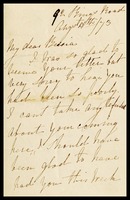 My dear
I was so glad to
receive your letter but
very sorry to hear you
had been so poorly
I can't take any
about your coming
here, I should have
been glad to have
had you this week